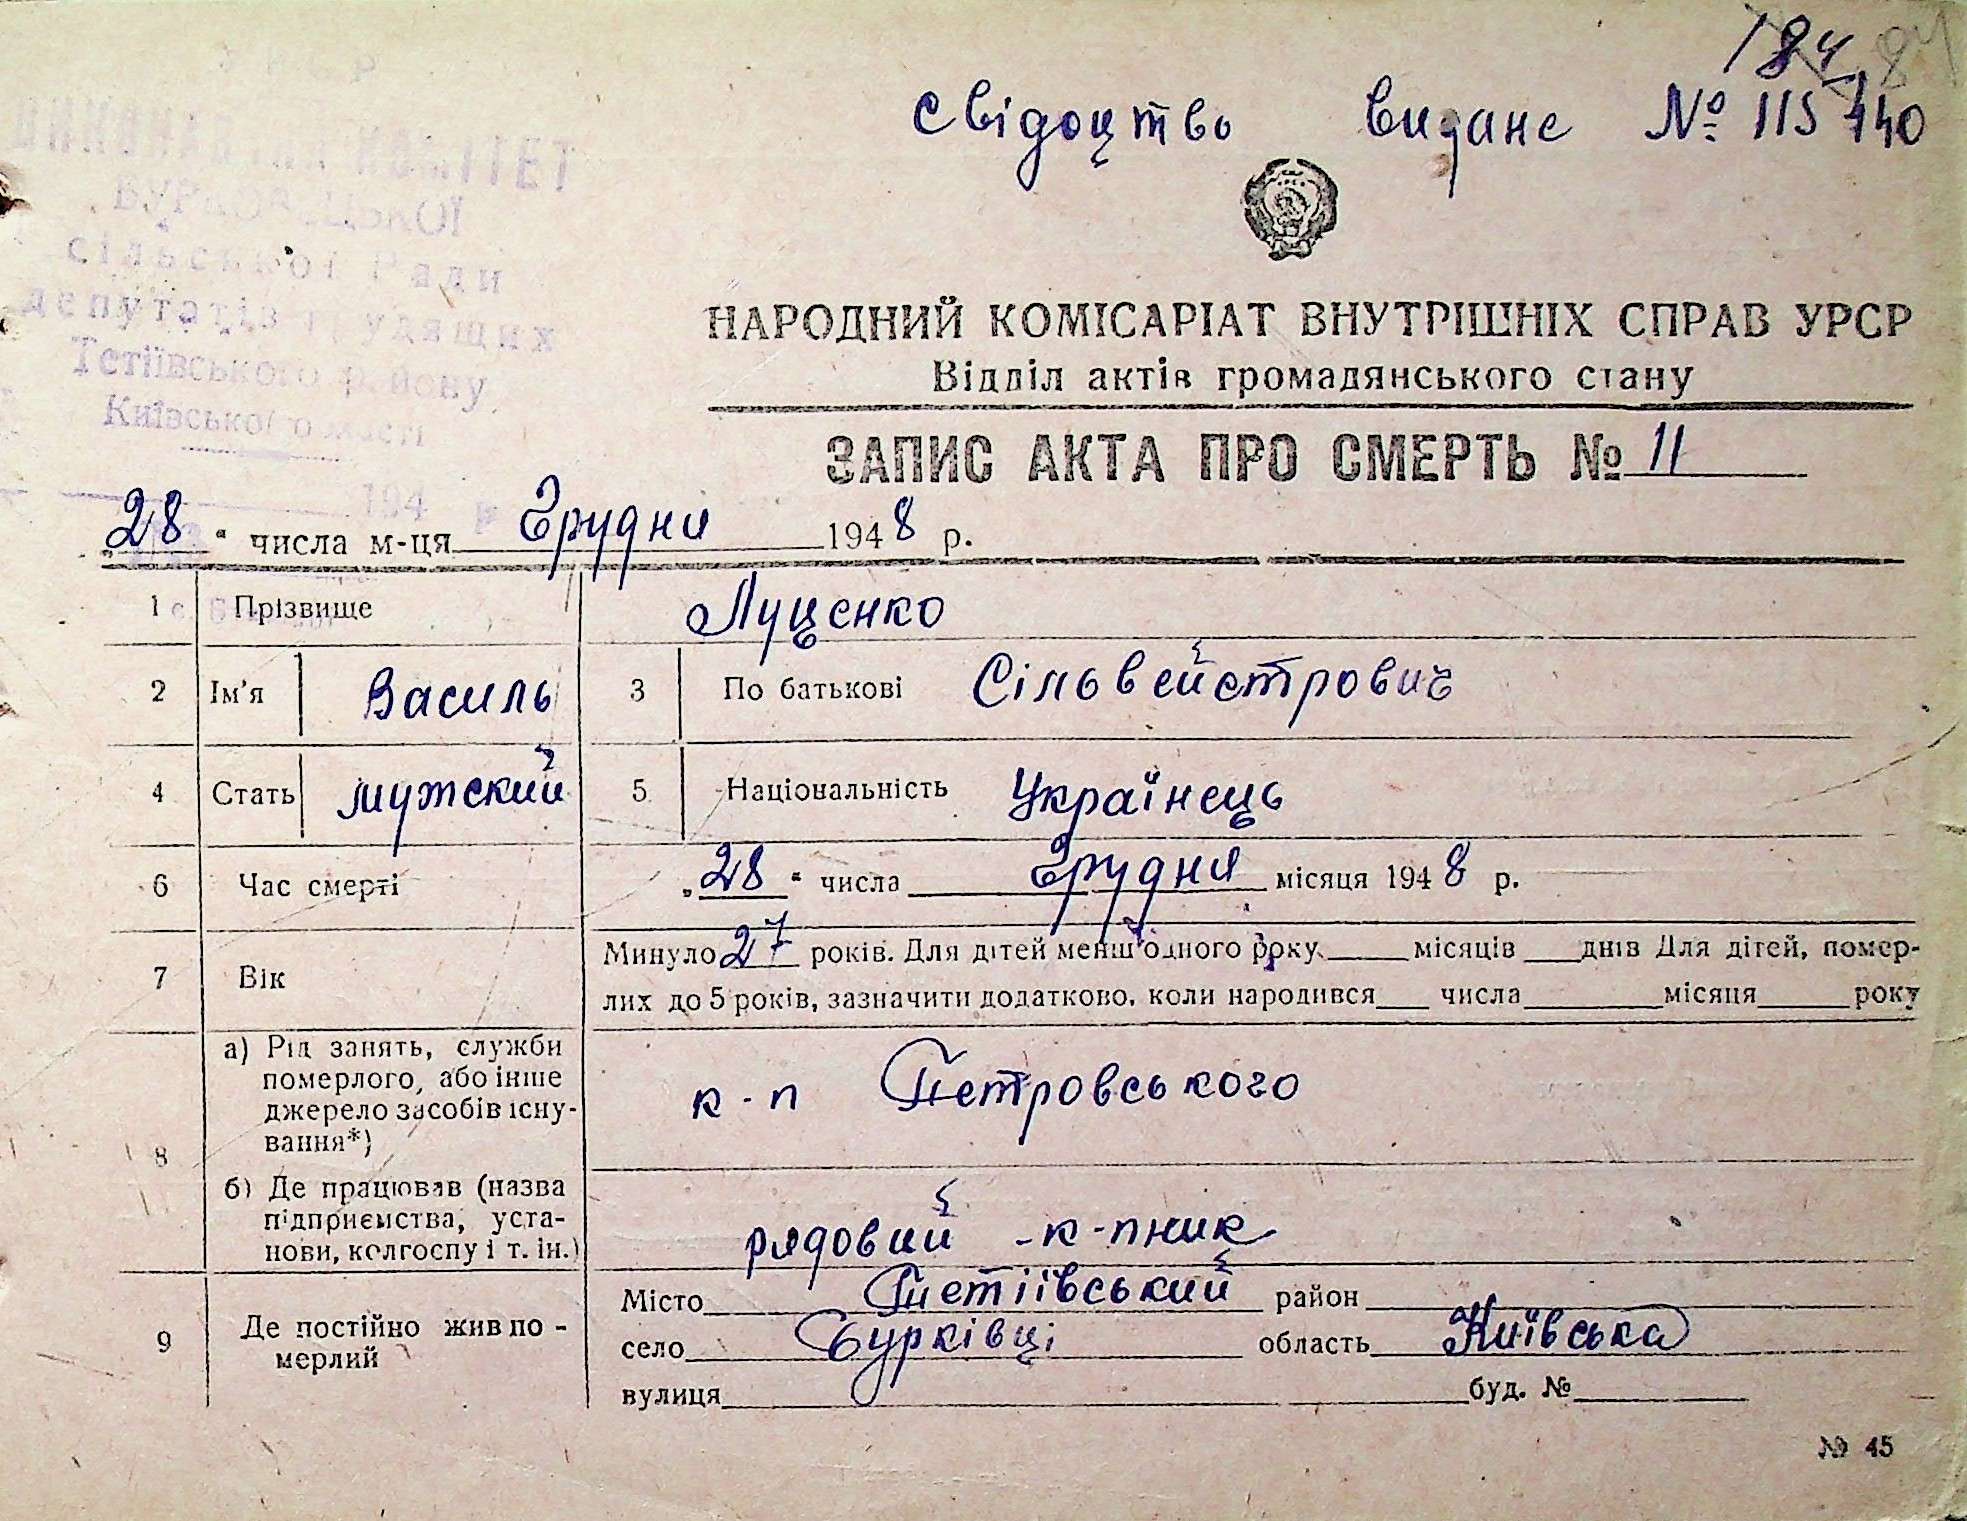 184 84
Свідоцтво видане № 115440
УРСР
ВИКОНАВЧИЙ КОМІТЕТ
БУРКОВЕЦЬКОЇ
сільської Ради
депутатів трудящих
Тетіївського району
Київської області
194 р
НАРОДНИЙ КОМІСАРІАТ ВНУТРІШНІХ СПРАВ УРСР
Відділ актів громадянського стану
ЗАПИС АКТА ПРО СМЕРТЬ № 11
„28" числа м-ця Грудня 1948 р.
1 Прізвище Луценко
2 Ім'я Василь 3 По батькові Сільвейстрович
4 Стать мужский 5 Національність Українець
6 Час смерті „28" числа Грудня місяця 1948 р.
7 Вік Минуло 27 років. Для дітей менш одного року ____ місяців ____ днів Для дітей, помер-
лих до 5 років, зазначити додатково, коли народився ____ числа ____ місяця ____ року
8 а) Рід занять, служби
померлого, або інше
джерело засобів існу-
вання*)
к-п Петровського
б) Де працював (назва
підприємства, уста-
нови, колгоспу і т. ін.)
рядовий -к-пник
9 Де постійно жив по-
мерлий
Місто Тетіївський район
село Бурківці область Київська
вулиця ____ буд. №
№ 45